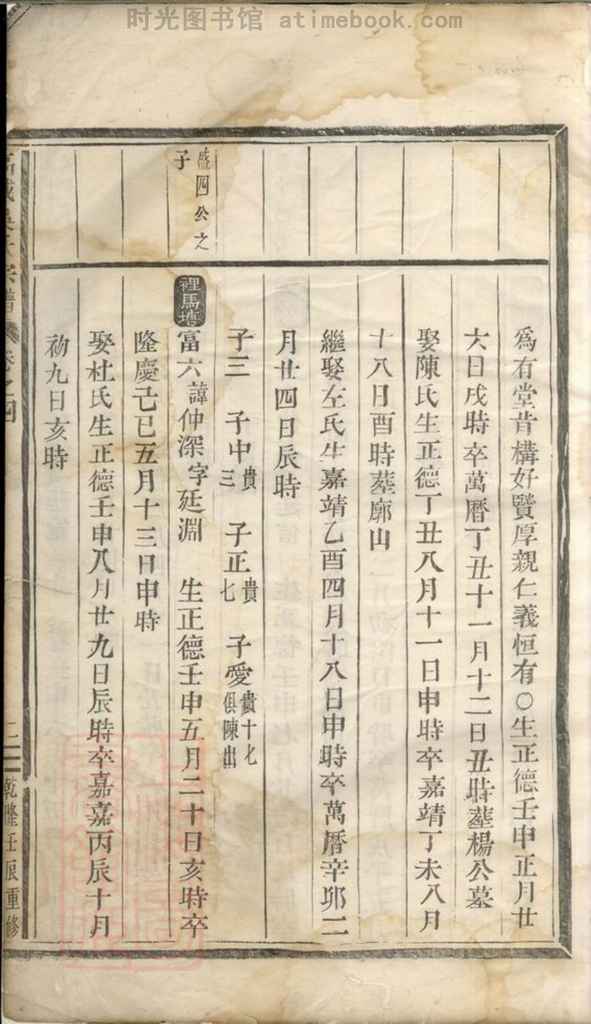 时光图书馆 atimebook.com
爲有堂昔構好賢厚親仁義恒有○生正德壬申正月廿
六日戌時卒萬曆丁丑十一月十二日丑時塟楊公墓
娶陳氏生正德丁丑八月十一日申時卒嘉靖丁未八月
十八日酉時塟廓山
繼娶左氏生嘉靖乙酉四月十八日申時卒萬曆辛卯二
月廿四日辰時
子三 子中貴三 子正貴七 子愛貴十七俱陳出
盛四公之子
裡馬塘
富六諱仲深字廷淵 生正德壬申五月二十日亥時卒
隆慶己巳五月十三日申時
娶杜氏生正德壬申八月廿九日辰時卒嘉嘉丙辰十月
初九日亥時
宗譜 卷之四
二 乾隆壬辰重修